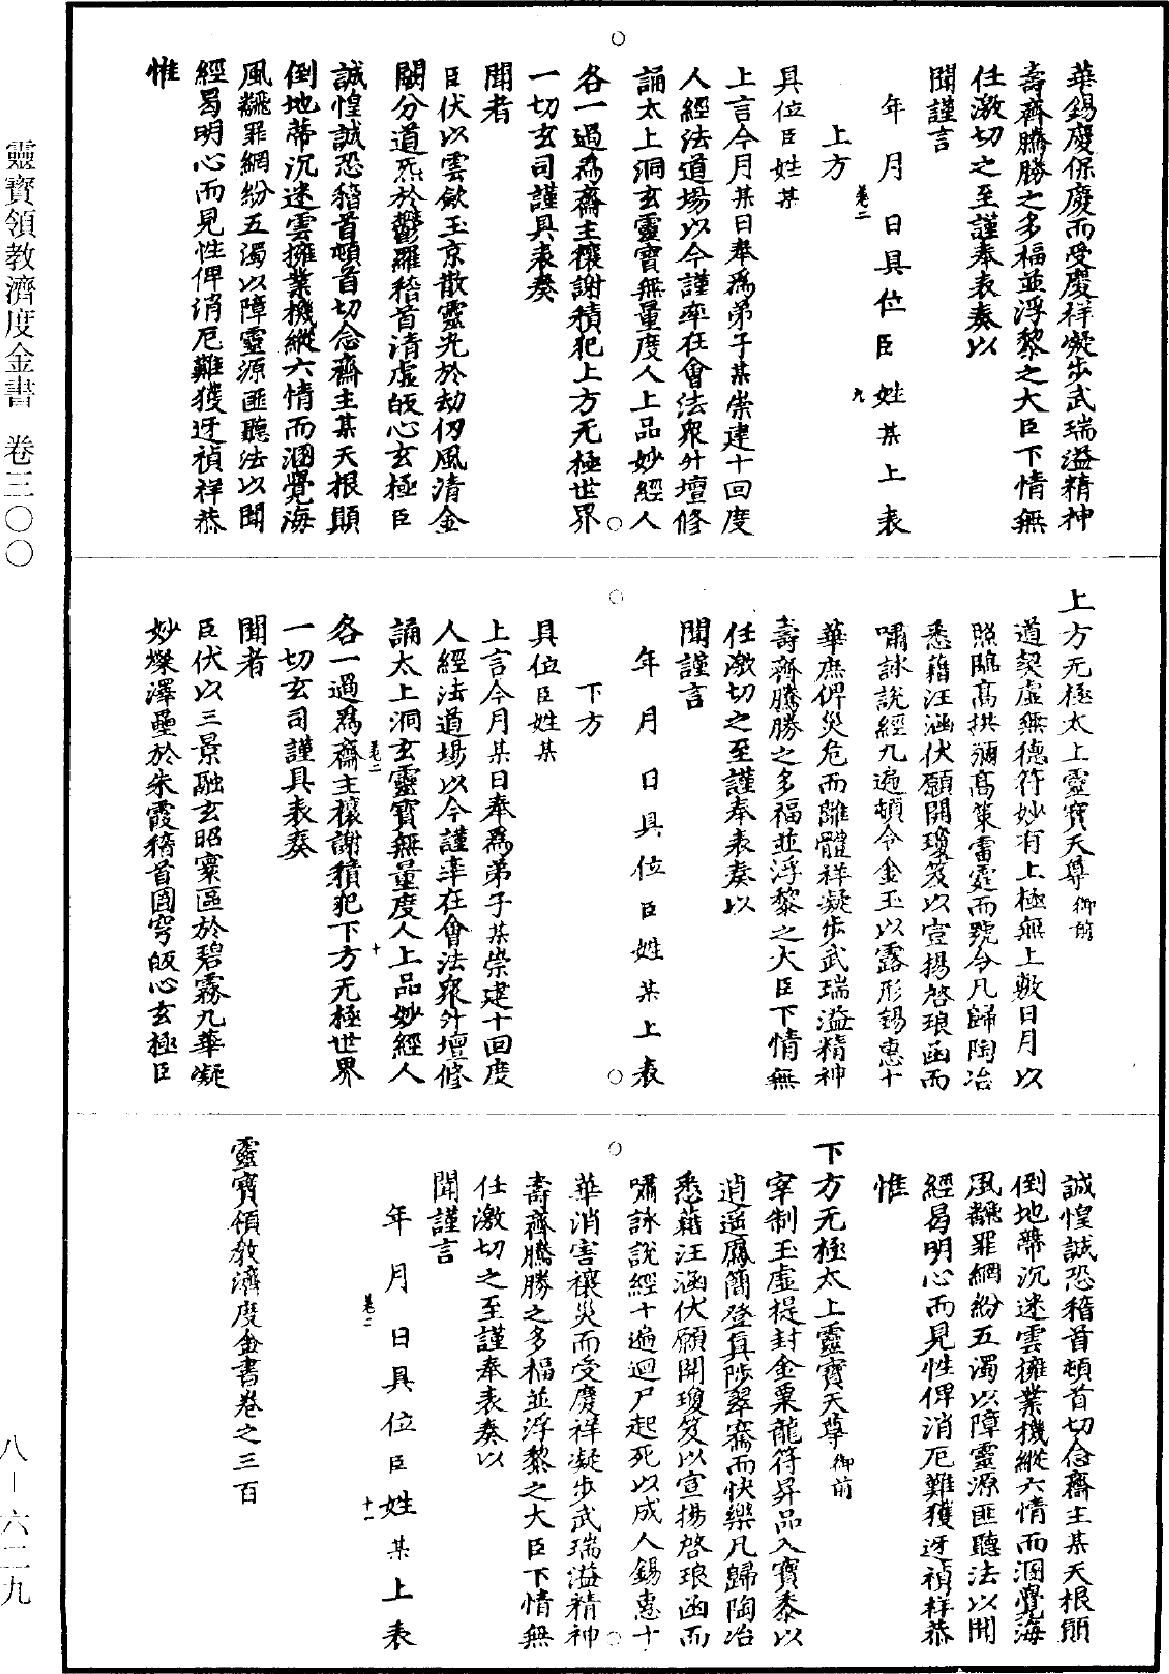 華錫慶保慶而受慶祥凝步武瑞溢精神
壽齊騰勝之多福並浮黎之大臣下情無
任激切之至謹奉表奏以
聞謹言
年 月 日具位臣姓某上表
卷二 九
上方
具位臣姓某
上言今月某日奉為弟子某崇建十回度
人經法道場以今謹率在會法眾升壇修
誦太上洞玄靈寶無量度人上品妙經人
各一過為齋主禳謝積犯上方无極世界
一切玄司謹具表奏
聞者
臣伏以雲斂玉京散靈光於劫仞風清金
闕分道炁於鬱羅稽首清虛皈心玄極臣
誠惶誠恐稽首頓首切念齋主某天根顛
倒地蒂沉迷雲擁業機縱六情而涸覺海
風飜罪網紛五濁以障靈源匪聽法以聞
經曷明心而見性俾消厄難獲迓禎祥恭
惟
上方无極太上靈寶天尊御前
道契虛無德符妙有上極無上敷日月以
照臨高拱彌高策雷霆而號令凡歸陶冶
悉藉汪涵伏願開瓊笈以宣揚啓琅函而
嘯詠說經九遍頓令金玉以露形錫惠十
華庶俾災危而離體祥凝步武瑞溢精神
壽齊騰勝之多福並浮黎之大臣下情無
任激切之至謹奉表奏以
聞謹言
年 月 日具位臣姓某上表
下方
具位臣姓某
上言今月某日奉為弟子某崇建十回度
人經法道場以今謹率在會法眾升壇修
誦太上洞玄靈寶無量度人上品妙經人
卷二 十
各一過為齋主禳謝積犯下方无極世界
一切玄司謹具表奏
聞者
臣伏以三景融玄昭寀區於碧霧九華凝
妙燦澤壘於朱霞稽首圓穹皈心玄極臣
誠惶誠恐稽首頓首切念齋主某天根顛
倒地蒂沉迷雲擁業機縱六情而涸覺海
風飜罪網紛五濁以障靈源匪聽法以聞
經曷明心而見性俾消厄難獲迓禎祥恭
惟
下方无極太上靈寶天尊御前
宰制玉虛提封金粟龍符昇品入寶黍以
逍遥鳳簡登真陟翠霱而快樂凡歸陶冶
悉藉汪涵伏願開瓊笈以宣揚啓琅函而
嘯詠說經十遍迴尸起死以成人錫惠十
華消害禳災而受慶祥凝步武瑞溢精神
壽齊騰勝之多福並浮黎之大臣下情無
任激切之至謹奉表奏以
聞謹言
年 月 日具位臣姓某上表
卷二 十一
靈寶領教濟度金書卷之三百
靈寶領教濟度金書 卷三〇〇
八—六二九